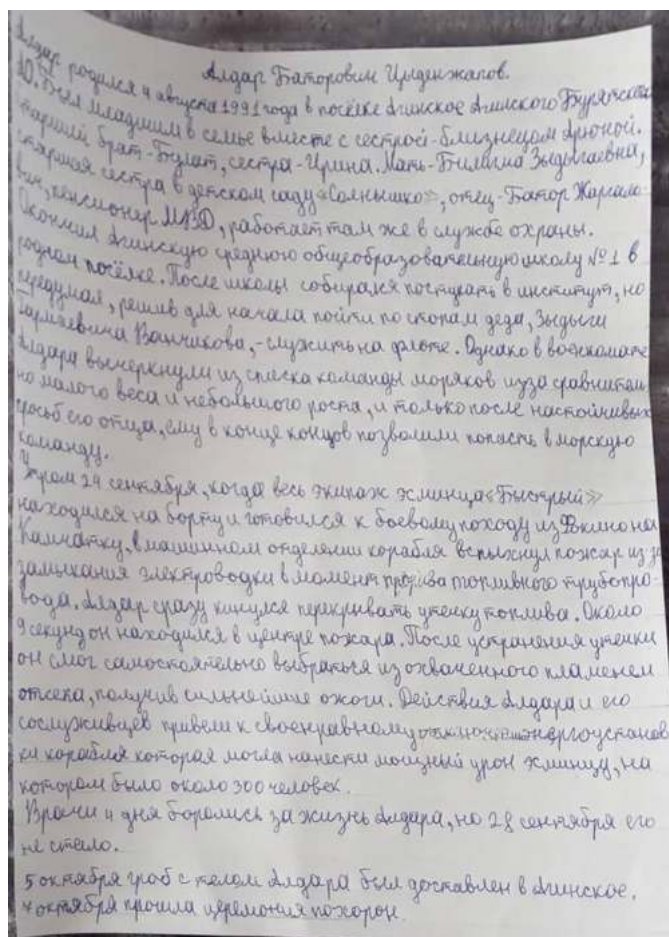 Алдар Баторович Цыденжапов.
Алдар родился 4 августа 1991 года в посёлке Агинское Агинского Бурятского
АО. Был младшим в семье вместе с сестрой-близнецом Арюной.
Старший брат-Булат, сестра-Ирина. Мать-Билигма Зыдыгаевна,
старшая сестра в детском саду «Солнышко», отец-Батор Жаргало-
вич, пенсионер МВД, работает там же в службе охраны.
Окончил Агинскую среднюю общеобразовательную школу №1 в
родном посёлке. После школы собирался поступать в институт, но
передумал, решив для начала пойти по стопам деда, Зыдыги
Гармаевича Ванчикова,-служить на флоте. Однако в военкомате
Алдара вычеркнули из списка команды моряков изза сравнитель
но малого веса и небольшого роста, и только после настойчивых
просьб его отца, ему в конце концов позволили попасть в морскую
команду.
Утром 24 сентября, когда весь экипаж эсминца «Быстрый»
находился на борту и готовился к боевому походу из Фокино на
Камчатку, в машинном отделении корабля вспыхнул пожар из за
замыкания электроводки в момент прорыва топливного трубопро-
вода. Алдар сразу кинулся перекрывать утечку топлива. Около
9 секунд он находился в центре пожара. После устранения утечки
он смог самостоятельно выбраться из охваченного пламенем
отсека, получив сильнейшие ожоги. Действия Алдара и его
сослуживцев привели к своенравному энергоустанов
ки корабля которая могла нанести мощный урон эсминцу, на
котором было около 300 человек.
Врачи 4 дня боролись за жизнь Алдара, но 28 сентября его
не стало.
5 октября гроб с телом Алдара был доставлен в Агинское,
октября прошла церемония похорон.